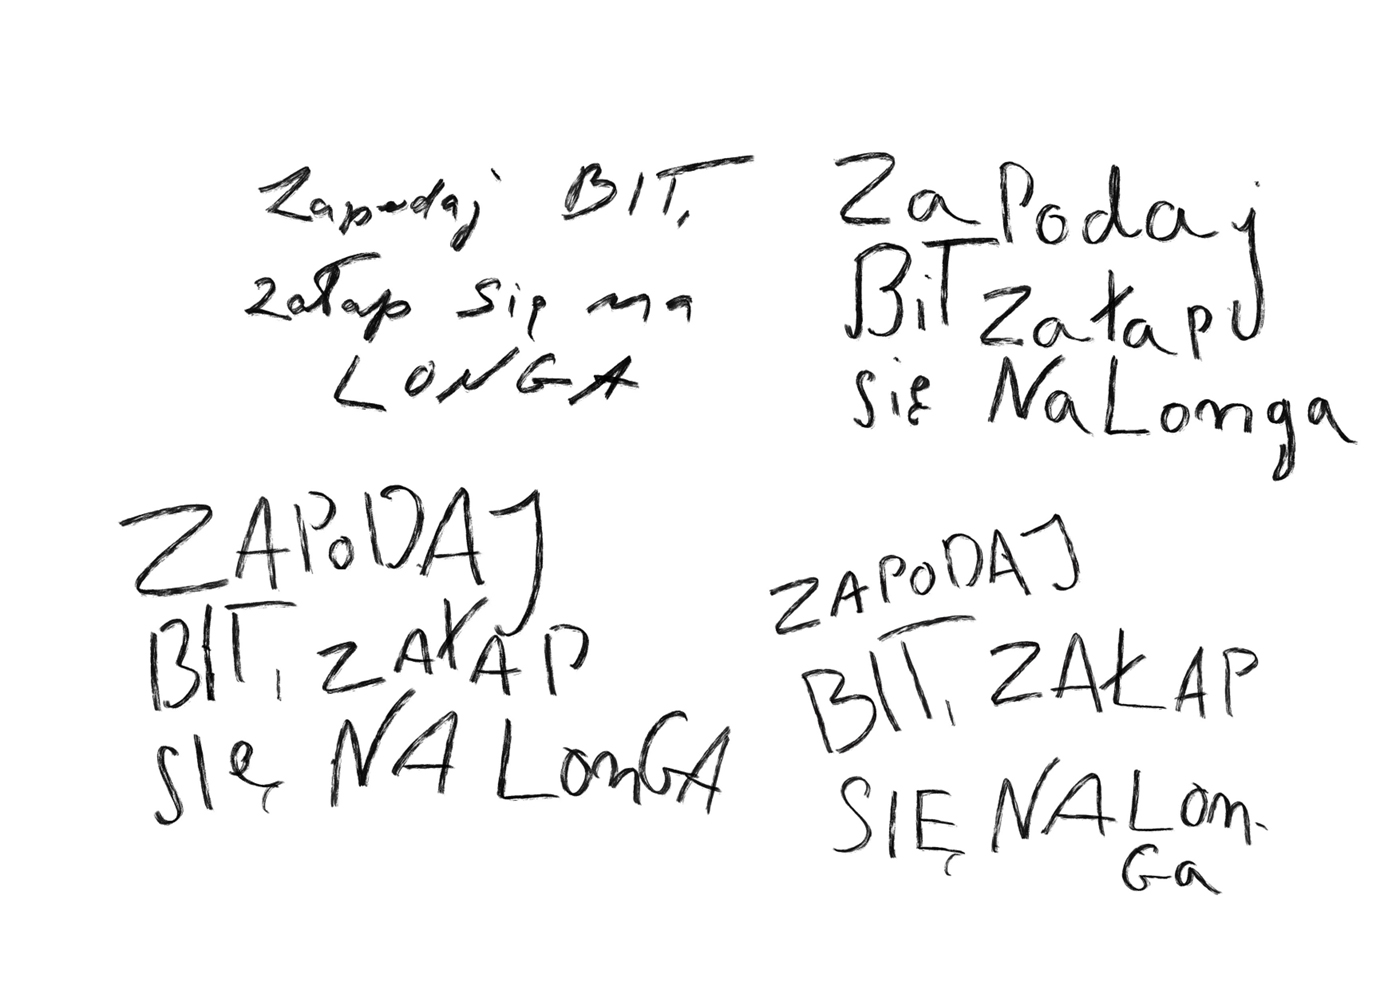 Zapodaj BIT,
załap się na
LONGA
ZaPodaj
BiT załap
się Na Longa
ZAPODAJ
BIT, ZAŁAP
SIę NA LonGA
ZAPODAJ
BIT, ZAŁAP
SIĘ NA Lon-
Ga